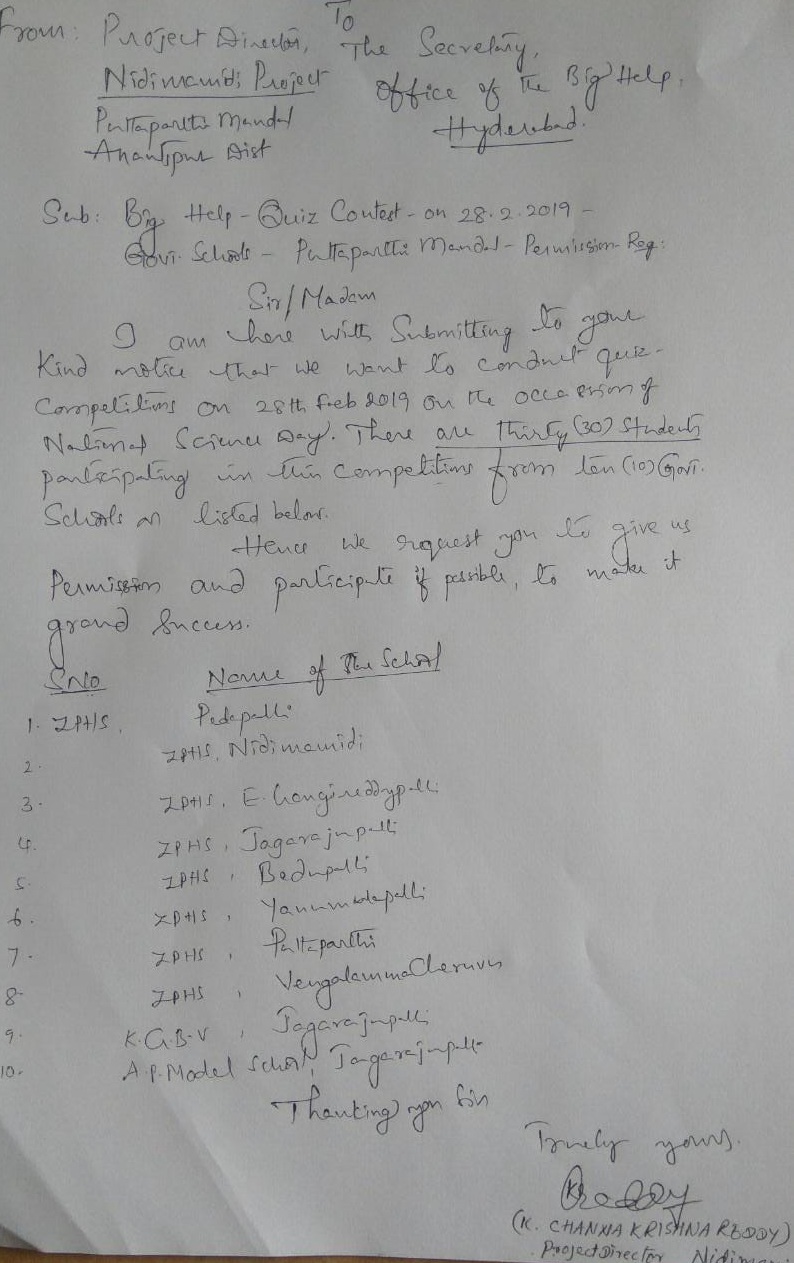 From: Project Director,
Nidimamidi Project
Puttaparthi Mandal
Anantpur Dist
To
The Secretary,
Office of the Big Help,
Hyderabad.
Sub: Big Help - Quiz Contest - on 28.2.2019 -
Govt. Schools - Puttaparthi Mandal - Permission - Reg:
Sir/Madam
I am here with Submitting to your
Kind notice that we want to conduct quiz-
Competitions on 28th Feb 2019 on the occasion of
National Science Day. There are thirty (30) Students
participating in this competitions from ten (10) Govt.
Schools as listed below.
Hence we request you to give us
Permission and participate if possible, to make it
grand Success.
SNo Name of The School
1. ZPHS, Pedapalli
2. ZPHS, Nidimamidi
3. ZPHS, E. Gongireddypalli
4. ZPHS, Jagarajupalli
5. ZPHS, Bedupalli
6. ZPHS, Yanumulapalli
7. ZPHS, Puttaparthi
8. ZPHS, Vengalamma Cheruvu
9. K.G.B.V, Jagarajupalli
10. A.P. Model School, Jagarajupalli
Thanking you Sir
Truely yours.
KReddy
(K. CHANNA KRISHNA REDDY)
Project Director